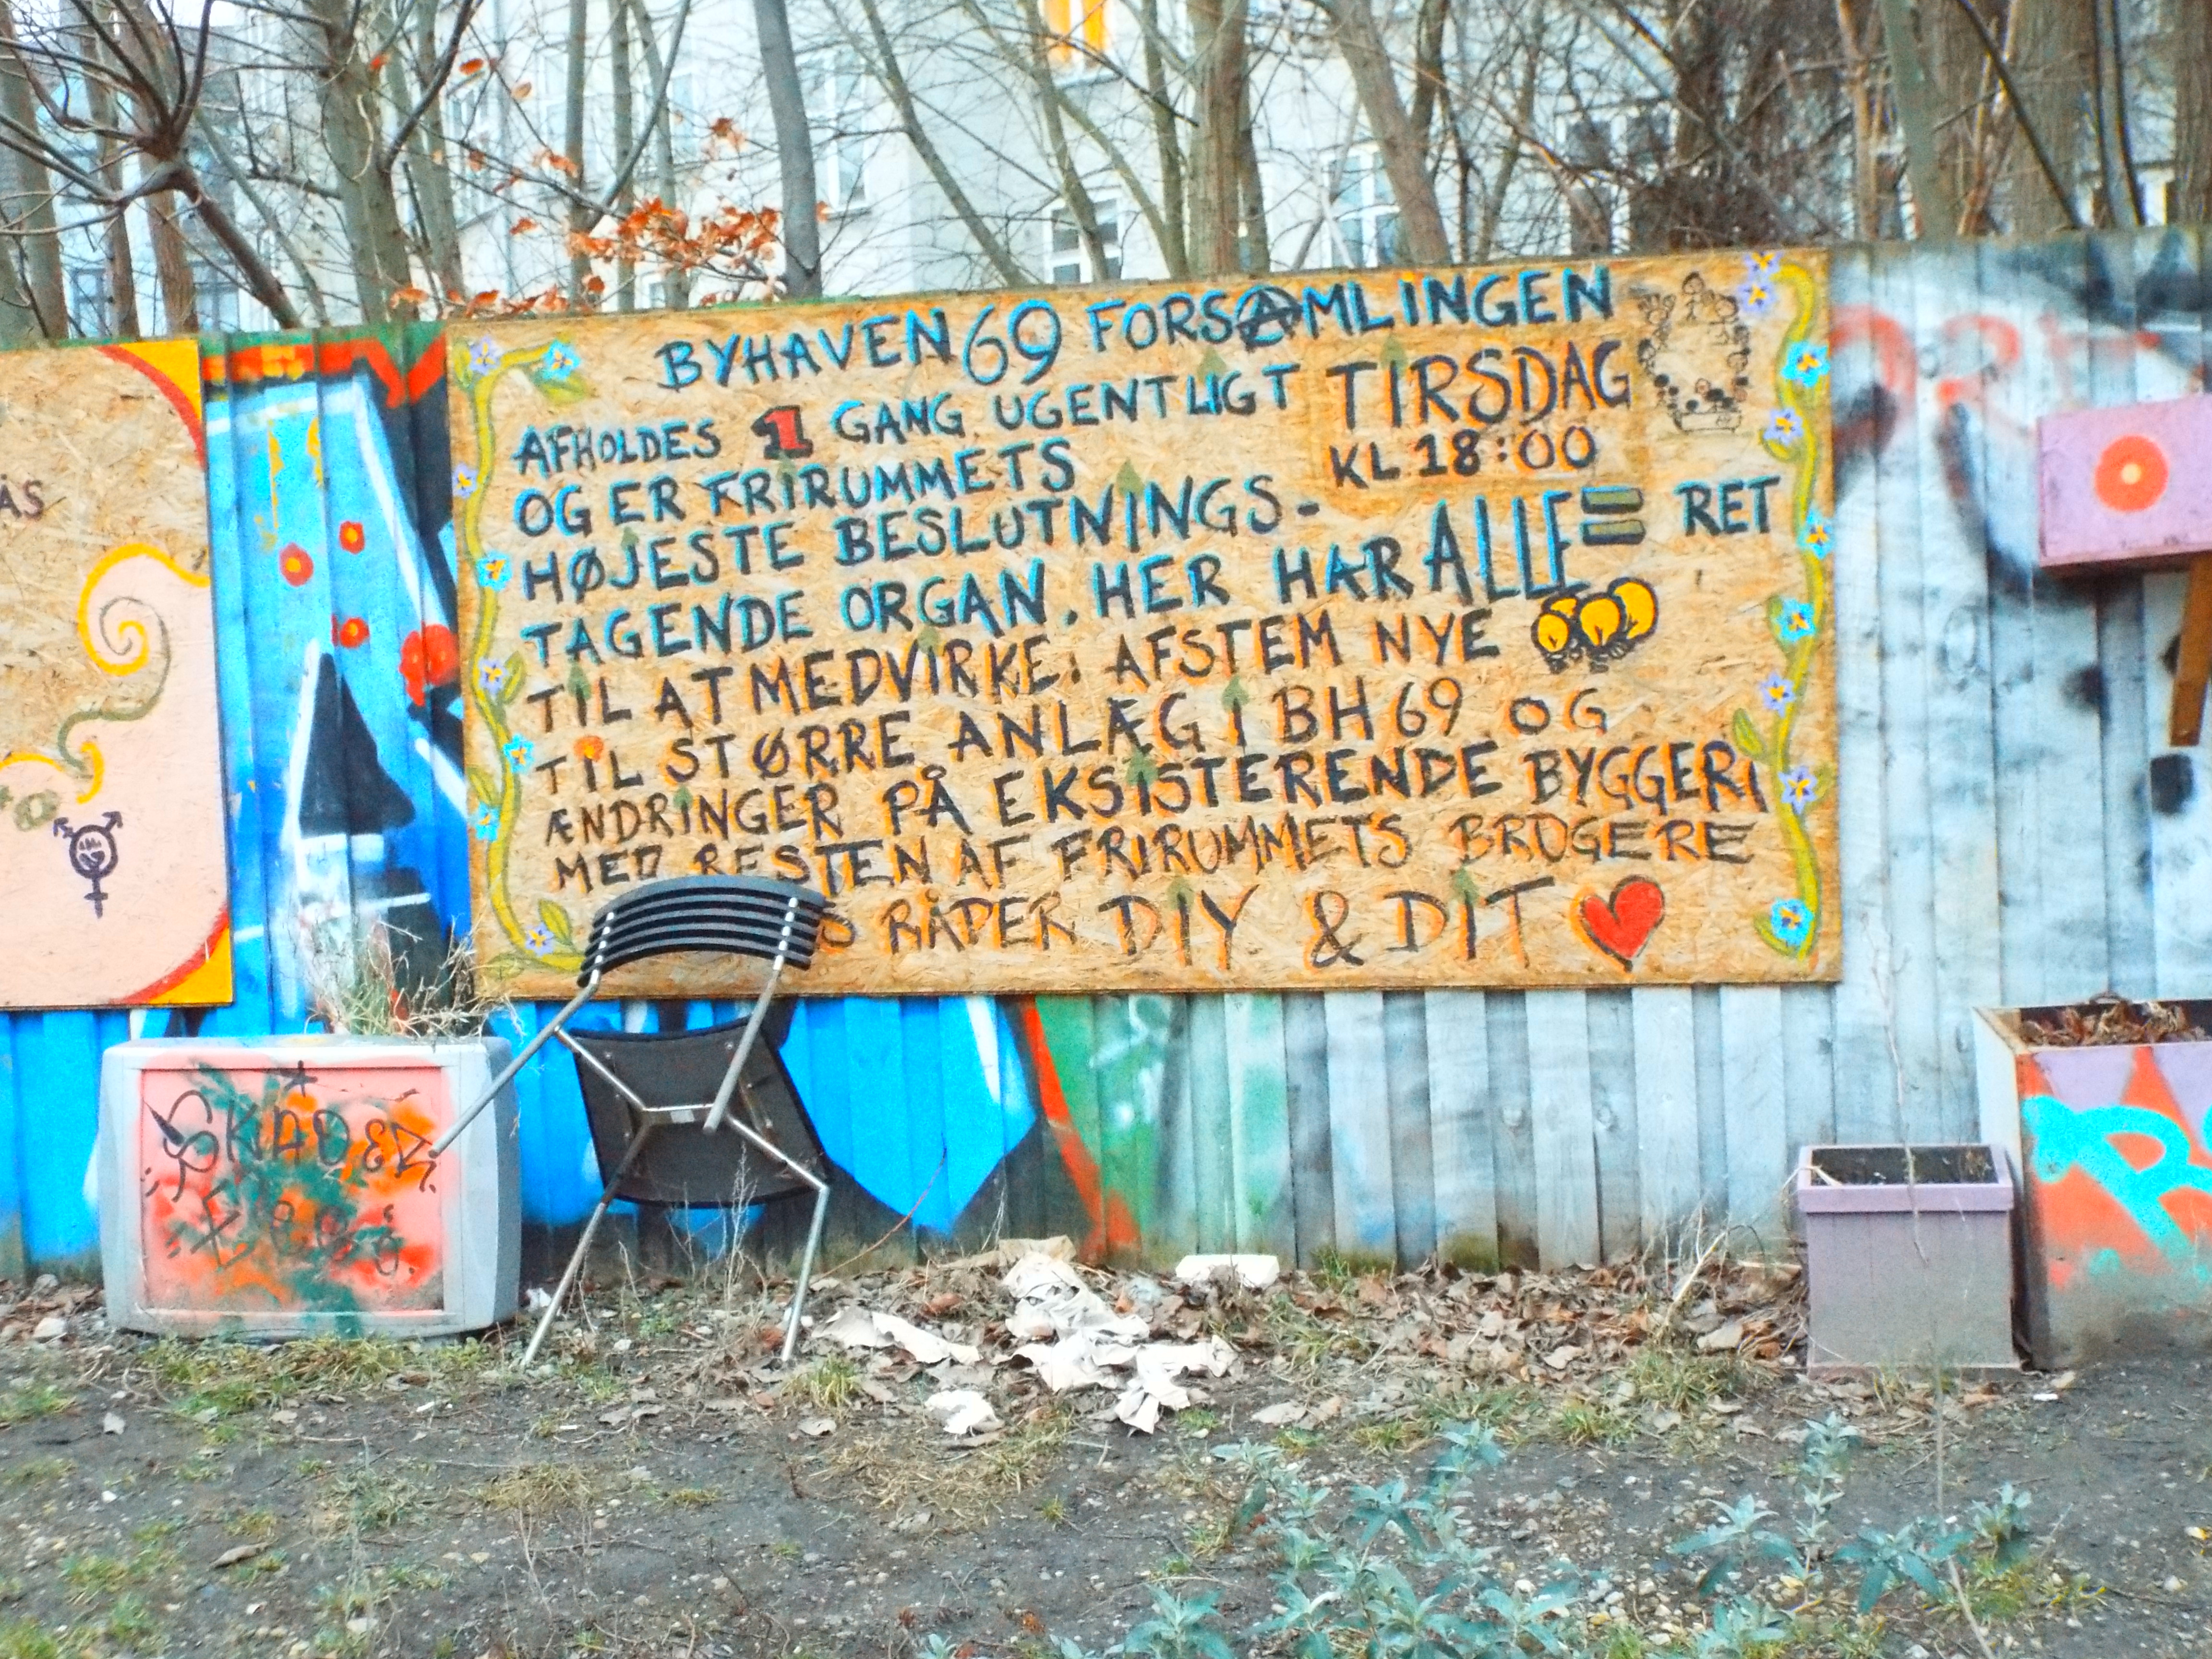 BYHAVEN 69 FORSAMLINGEN
AFHOLDES 1 GANG UGENTLIGT TIRSDAG
KL 18:00
OG ER FRIRUMMETS
HØJESTE BESLUTNINGS-
TAGENDE ORGAN. HER HAR ALLE = RET
TIL AT MEDVIRKE. AFSTEM NYE
TIL STØRRE ANLÆG I BH69 OG
ÆNDRINGER PÅ EKSISTERENDE BYGGERI
MED RESTEN AF FRIRUMMETS BRUGERE
RÅDER DIY & DIT
ÅS
SKADER